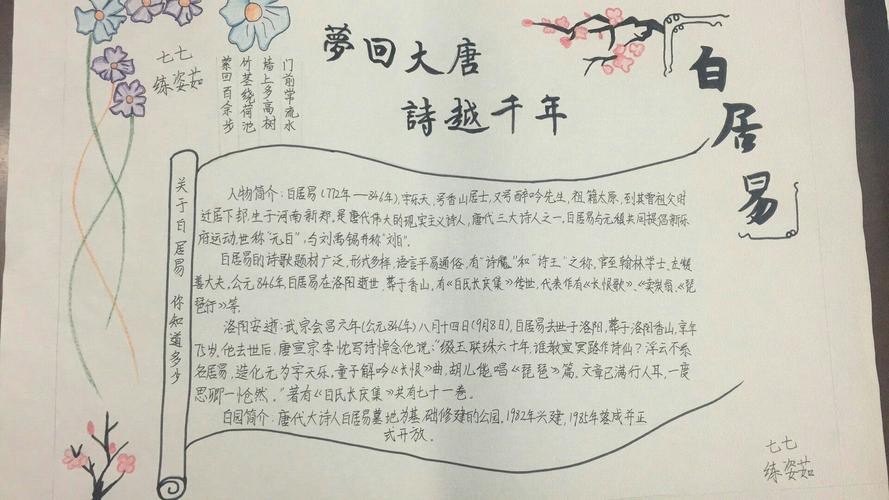 夢回大唐
詩越千年
白居易
七七
练姿茹
门前学流水
墙上多高树
竹茎绕荷池
萦回百余步
关于白居易 你知道多少
人物简介：白居易(772年——846年)，字乐天，号香山居士，又号醉吟先生，祖籍太原，到其曾祖父时
迁居下邽，生于河南新郑。是唐代伟大的现实主义诗人，唐代三大诗人之一。白居易与元稹共同提倡新乐
府运动，世称“元白”，与刘禹锡并称“刘白”。
白居易的诗歌题材广泛，形式多样，语言平易通俗，有“诗魔”和“诗王”之称，官至翰林学士、左赞
善大夫。公元846年，白居易在洛阳逝世，葬于香山。有《白氏长庆集》传世，代表作有《长恨歌》、《卖炭翁》、《琵
琶行》等。
洛阳安逝：武宗会昌六年(公元846年)八月十四日(9月8日)，白居易去世于洛阳，葬于洛阳香山，享年
75岁。他去世后，唐宣宗李忱写诗悼念他说：“缀玉联珠六十年，谁教冥路作诗仙？浮云不系
名居易，造化无为字天乐。童子解吟《长恨》曲，胡儿能唱《琵琶》篇。文章已满行人耳，一度
思卿一怆然。”著有《白氏长庆集》共有七十一卷。
白园简介：唐代大诗人白居易墓地为基础修建的公园。1982年兴建，1985年落成并正
式开放。
七七
练姿茹